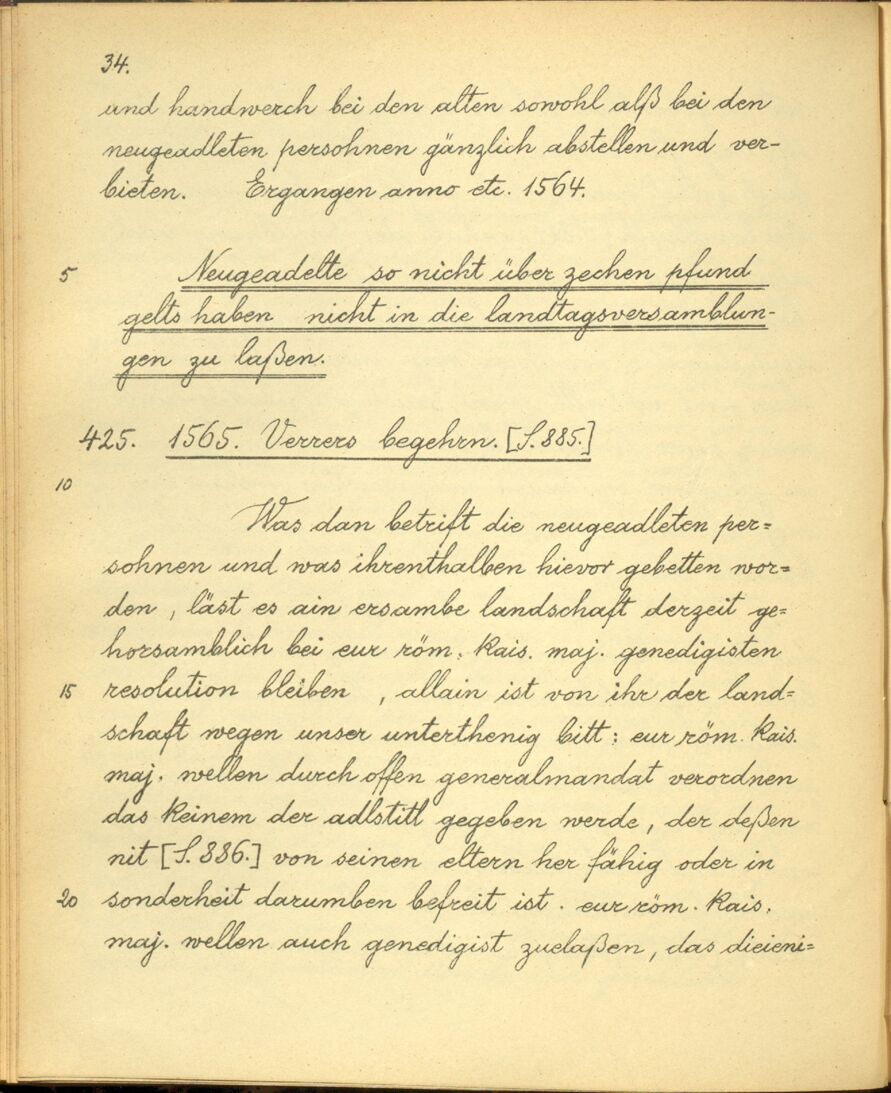 34.
und handwerch bei den alten sowohl alß bei den
neugeadleten persohnen gänzlich abstellen und ver-
bieten. Ergangen anno etc. 1564.
5 Neugeadelte so nicht über zechen pfund
gelts haben nicht in die landtagsversamblun-
gen zu laßen.
425. 1565. Verrers begehrn. [S. 885.]
10
Was dan betrift die neugeadleten per=
sohnen und was ihrenthalben hievor gebetten wor=
den, läst es ain ersambe landschaft derzeit ge=
horsamblich bei eur röm. kais. maj. genedigisten
15 resolution bleiben, allain ist von ihr der land=
schaft wegen unser unterthenig bitt: eur röm. kais.
maj. wellen durch offen generalmandat verordnen
das keinem der adlstitl gegeben werde, der deßen
nit [S. 886.] von seinen eltern her fähig oder in
20 sonderheit darumben befreit ist. eur röm. kais.
maj. wellen auch genedigist zuelaßen, das dieieni=